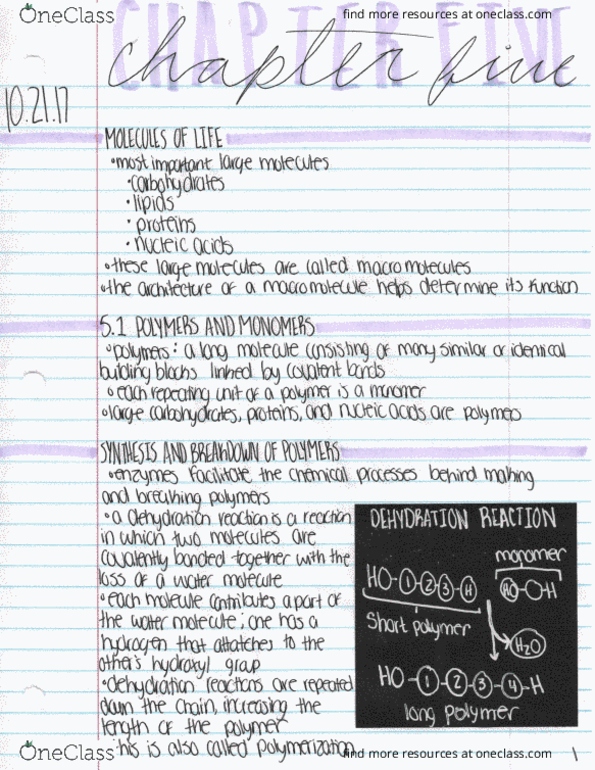 OneClass
find more resources at oneclass.com
CHAPTER FIVE
chapter five
10.21.17
MOLECULES OF LIFE
•most important large molecules
•carbohydrates
•lipids
•proteins
•nucleic acids
•these large molecules are called macromolecules
•the architecture of a macromolecule helps determine its function
5.1 POLYMERS AND MONOMERS
•polymers: a long molecule consisting of many similar or identical
building blocks linked by covalent bonds
•each repeating unit of a polymer is a monomer
•large carbohydrates, proteins, and nucleic acids are polymers
SYNTHESIS AND BREAKDOWN OF POLYMERS
•enzymes facilitate the chemical processes behind making
and breaking polymers
•a dehydration reaction is a reaction
in which two molecules are
covalently bonded together with the
loss of a water molecule
•each molecule contributes a part of
the water molecule; one has a
hydrogen that attatches to the
other's hydroxyl group
•dehydration reactions are repeated
down the chain, increasing the
length of the polymer
•this is also called polymerization
DEHYDRATION REACTION
monomer
HO-1-2-3-H
HO-O-H
short polymer
H2O
HO-1-2-3-4-H
long polymer
OneClass
find more resources at oneclass.com
1